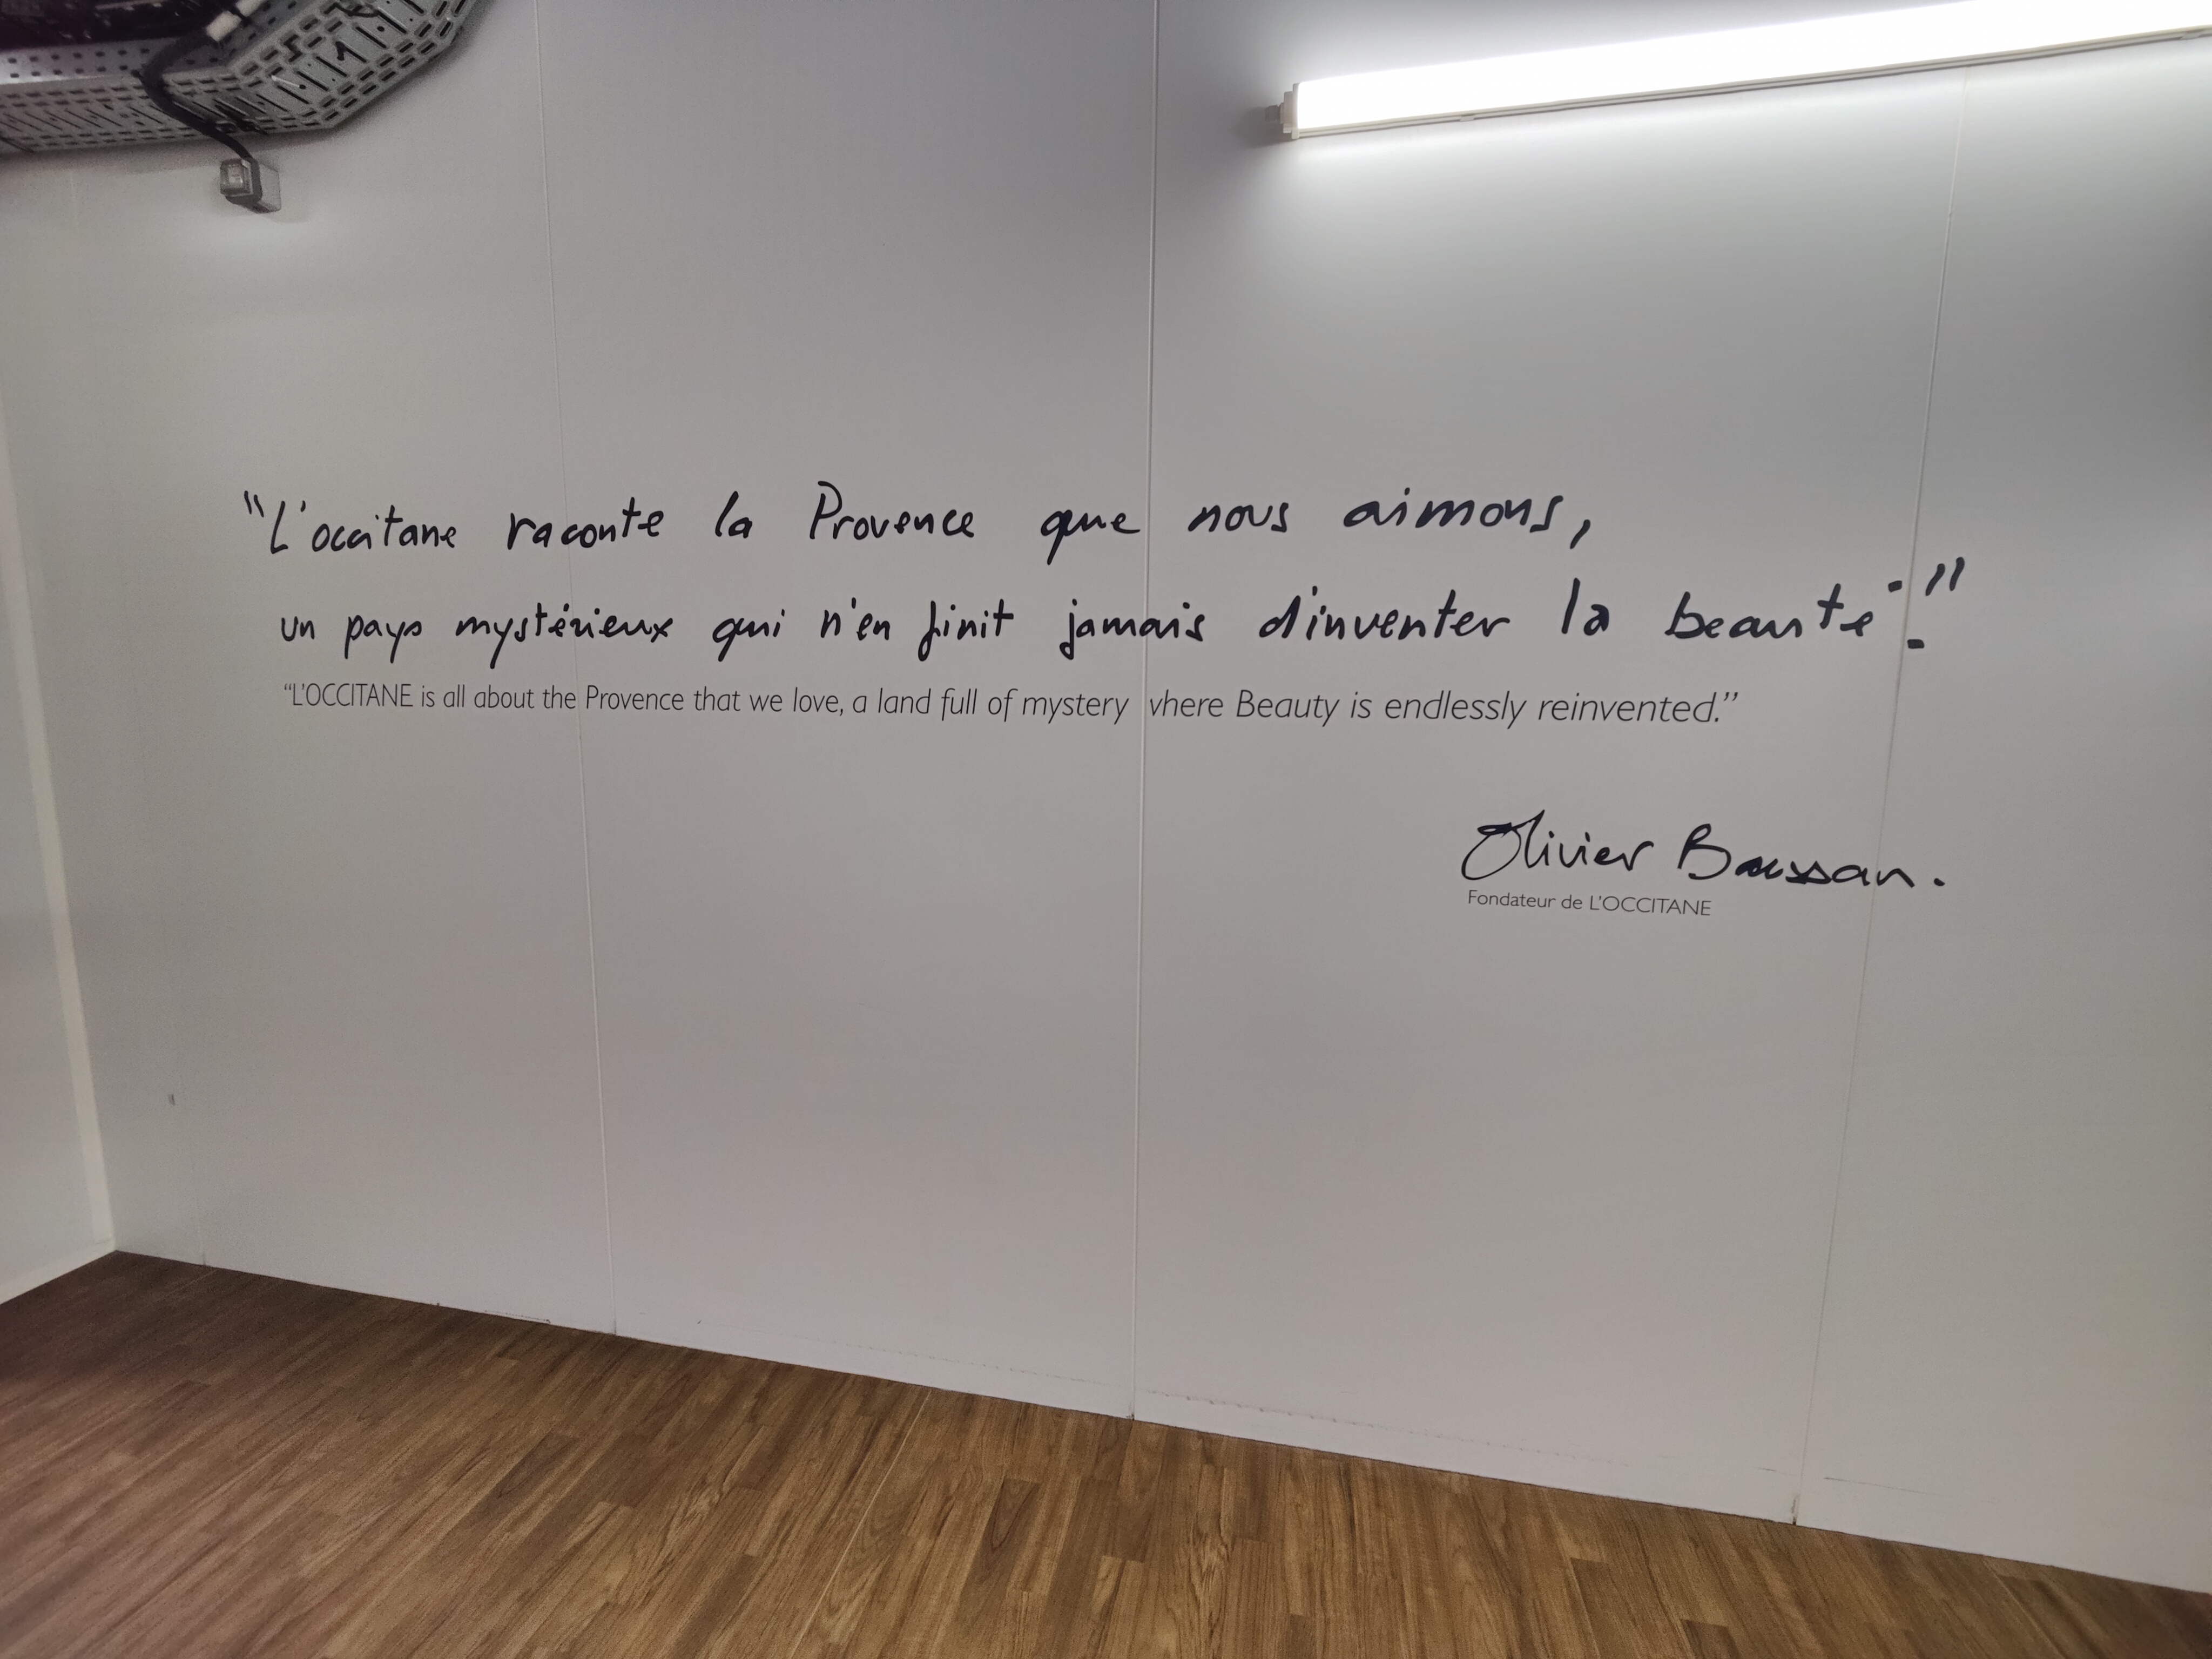 "L'occitane raconte la Provence que nous aimons,
un pays mystérieux qui n'en finit jamais d'inventer la beauté."
"L'OCCITANE is all about the Provence that we love, a land full of mystery where Beauty is endlessly reinvented."
Olivier Baussan.
Fondateur de L'OCCITANE